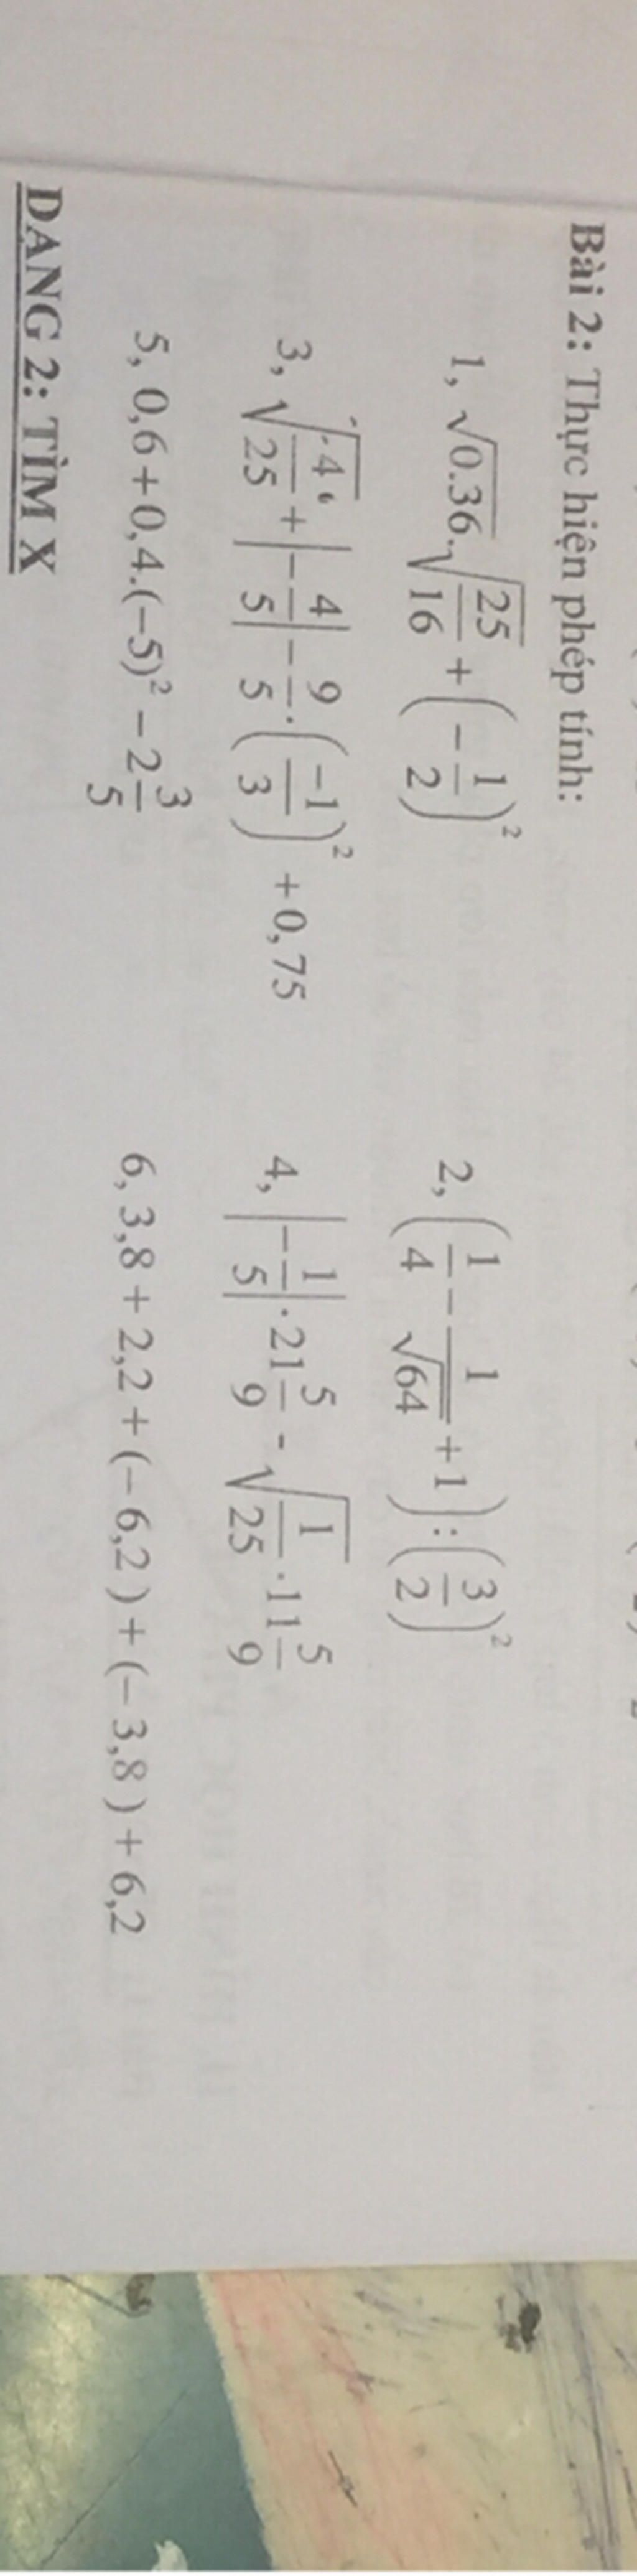 Bài 2: Thực hiện phép tính:
1, √0.36.√(25/16) + (−1/2)²
2, (1/4 − 1/√64 + 1) : (3/2)²
3, √(4/25) + |−4/5| − 9/5 . (−1/3)² + 0,75
4, |−1/5| . 21 5/9 - √(1/25) . 11 5/9
5, 0,6 + 0,4.(−5)² − 2 3/5
6, 3,8 + 2,2 + (− 6,2 ) + (− 3,8 ) + 6,2
DẠNG 2: TÌM X